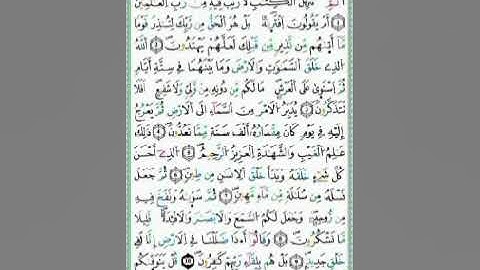 الٓمّٓ تَنْزِيْلُ الْكِتٰبِ لَا رَيْبَ فِيْهِ مِنْ رَّبِّ الْعٰلَمِيْنَ
اَمْ يَقُوْلُوْنَ افْتَرٰىهُ بَلْ هُوَ الْحَقُّ مِنْ رَّبِّكَ لِتُنْذِرَ قَوْمًا
مَّآ اَتٰىهُمْ مِّنْ نَّذِيْرٍ مِّنْ قَبْلِكَ لَعَلَّهُمْ يَهْتَدُوْنَ اَللّٰهُ
الَّذِيْ خَلَقَ السَّمٰوٰتِ وَالْاَرْضَ وَمَا بَيْنَهُمَا فِيْ سِتَّةِ اَيَّامٍ
ثُمَّ اسْتَوٰى عَلَى الْعَرْشِ مَا لَكُمْ مِّنْ دُوْنِهٖ مِنْ وَّلِيٍّ وَّلَا شَفِيْعٍ اَفَلَا
تَتَذَكَّرُوْنَ يُدَبِّرُ الْاَمْرَ مِنَ السَّمَآءِ اِلَى الْاَرْضِ ثُمَّ يَعْرُجُ
اِلَيْهِ فِيْ يَوْمٍ كَانَ مِقْدَارُهٗٓ اَلْفَ سَنَةٍ مِّمَّا تَعُدُّوْنَ ذٰلِكَ
عٰلِمُ الْغَيْبِ وَالشَّهَادَةِ الْعَزِيْزُ الرَّحِيْمُ الَّذِيْٓ اَحْسَنَ
كُلَّ شَيْءٍ خَلَقَهٗ وَبَدَاَ خَلْقَ الْاِنْسَانِ مِنْ طِيْنٍ ثُمَّ جَعَلَ
نَسْلَهٗ مِنْ سُلٰلَةٍ مِّنْ مَّآءٍ مَّهِيْنٍ ثُمَّ سَوّٰىهُ وَنَفَخَ فِيْهِ
مِنْ رُّوْحِهٖ وَجَعَلَ لَكُمُ السَّمْعَ وَالْاَبْصَارَ وَالْاَفْـِٕدَةَ قَلِيْلًا
مَّا تَشْكُرُوْنَ وَقَالُوْٓا ءَاِذَا ضَلَلْنَا فِى الْاَرْضِ ءَاِنَّا لَفِيْ
خَلْقٍ جَدِيْدٍ بَلْ هُمْ بِلِقَآئِ رَبِّهِمْ كٰفِرُوْنَ قُلْ يَتَوَفّٰىكُمْ